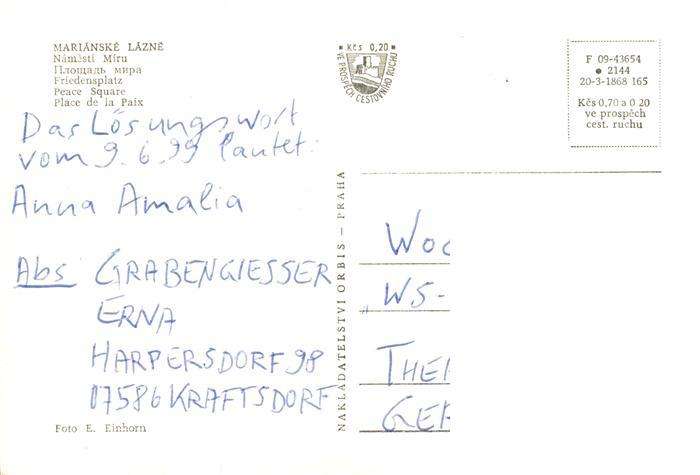 MARIÁNSKÉ LÁZNĚ
Náměstí Míru
Площадь мира
Friedensplatz
Peace Square
Place de la Paix
Das Lösungswort
vom 9.6.99 lautet:
Anna Amalia
Abs GRABENGIESSER
ERNA
HARPERSDORF 98
07586 KRAFTSDORF
Foto E. Einhorn
Kčs 0,20
VE PROSPĚCH CESTOVNÍHO RUCHU
NAKLADATELSTVÍ ORBIS – PRAHA
F 09-43654
2144
20-3-1868 165
Kčs 0,70 a 0 20
ve prospěch
cest. ruchu
Woc
„WS-
THEI
GER